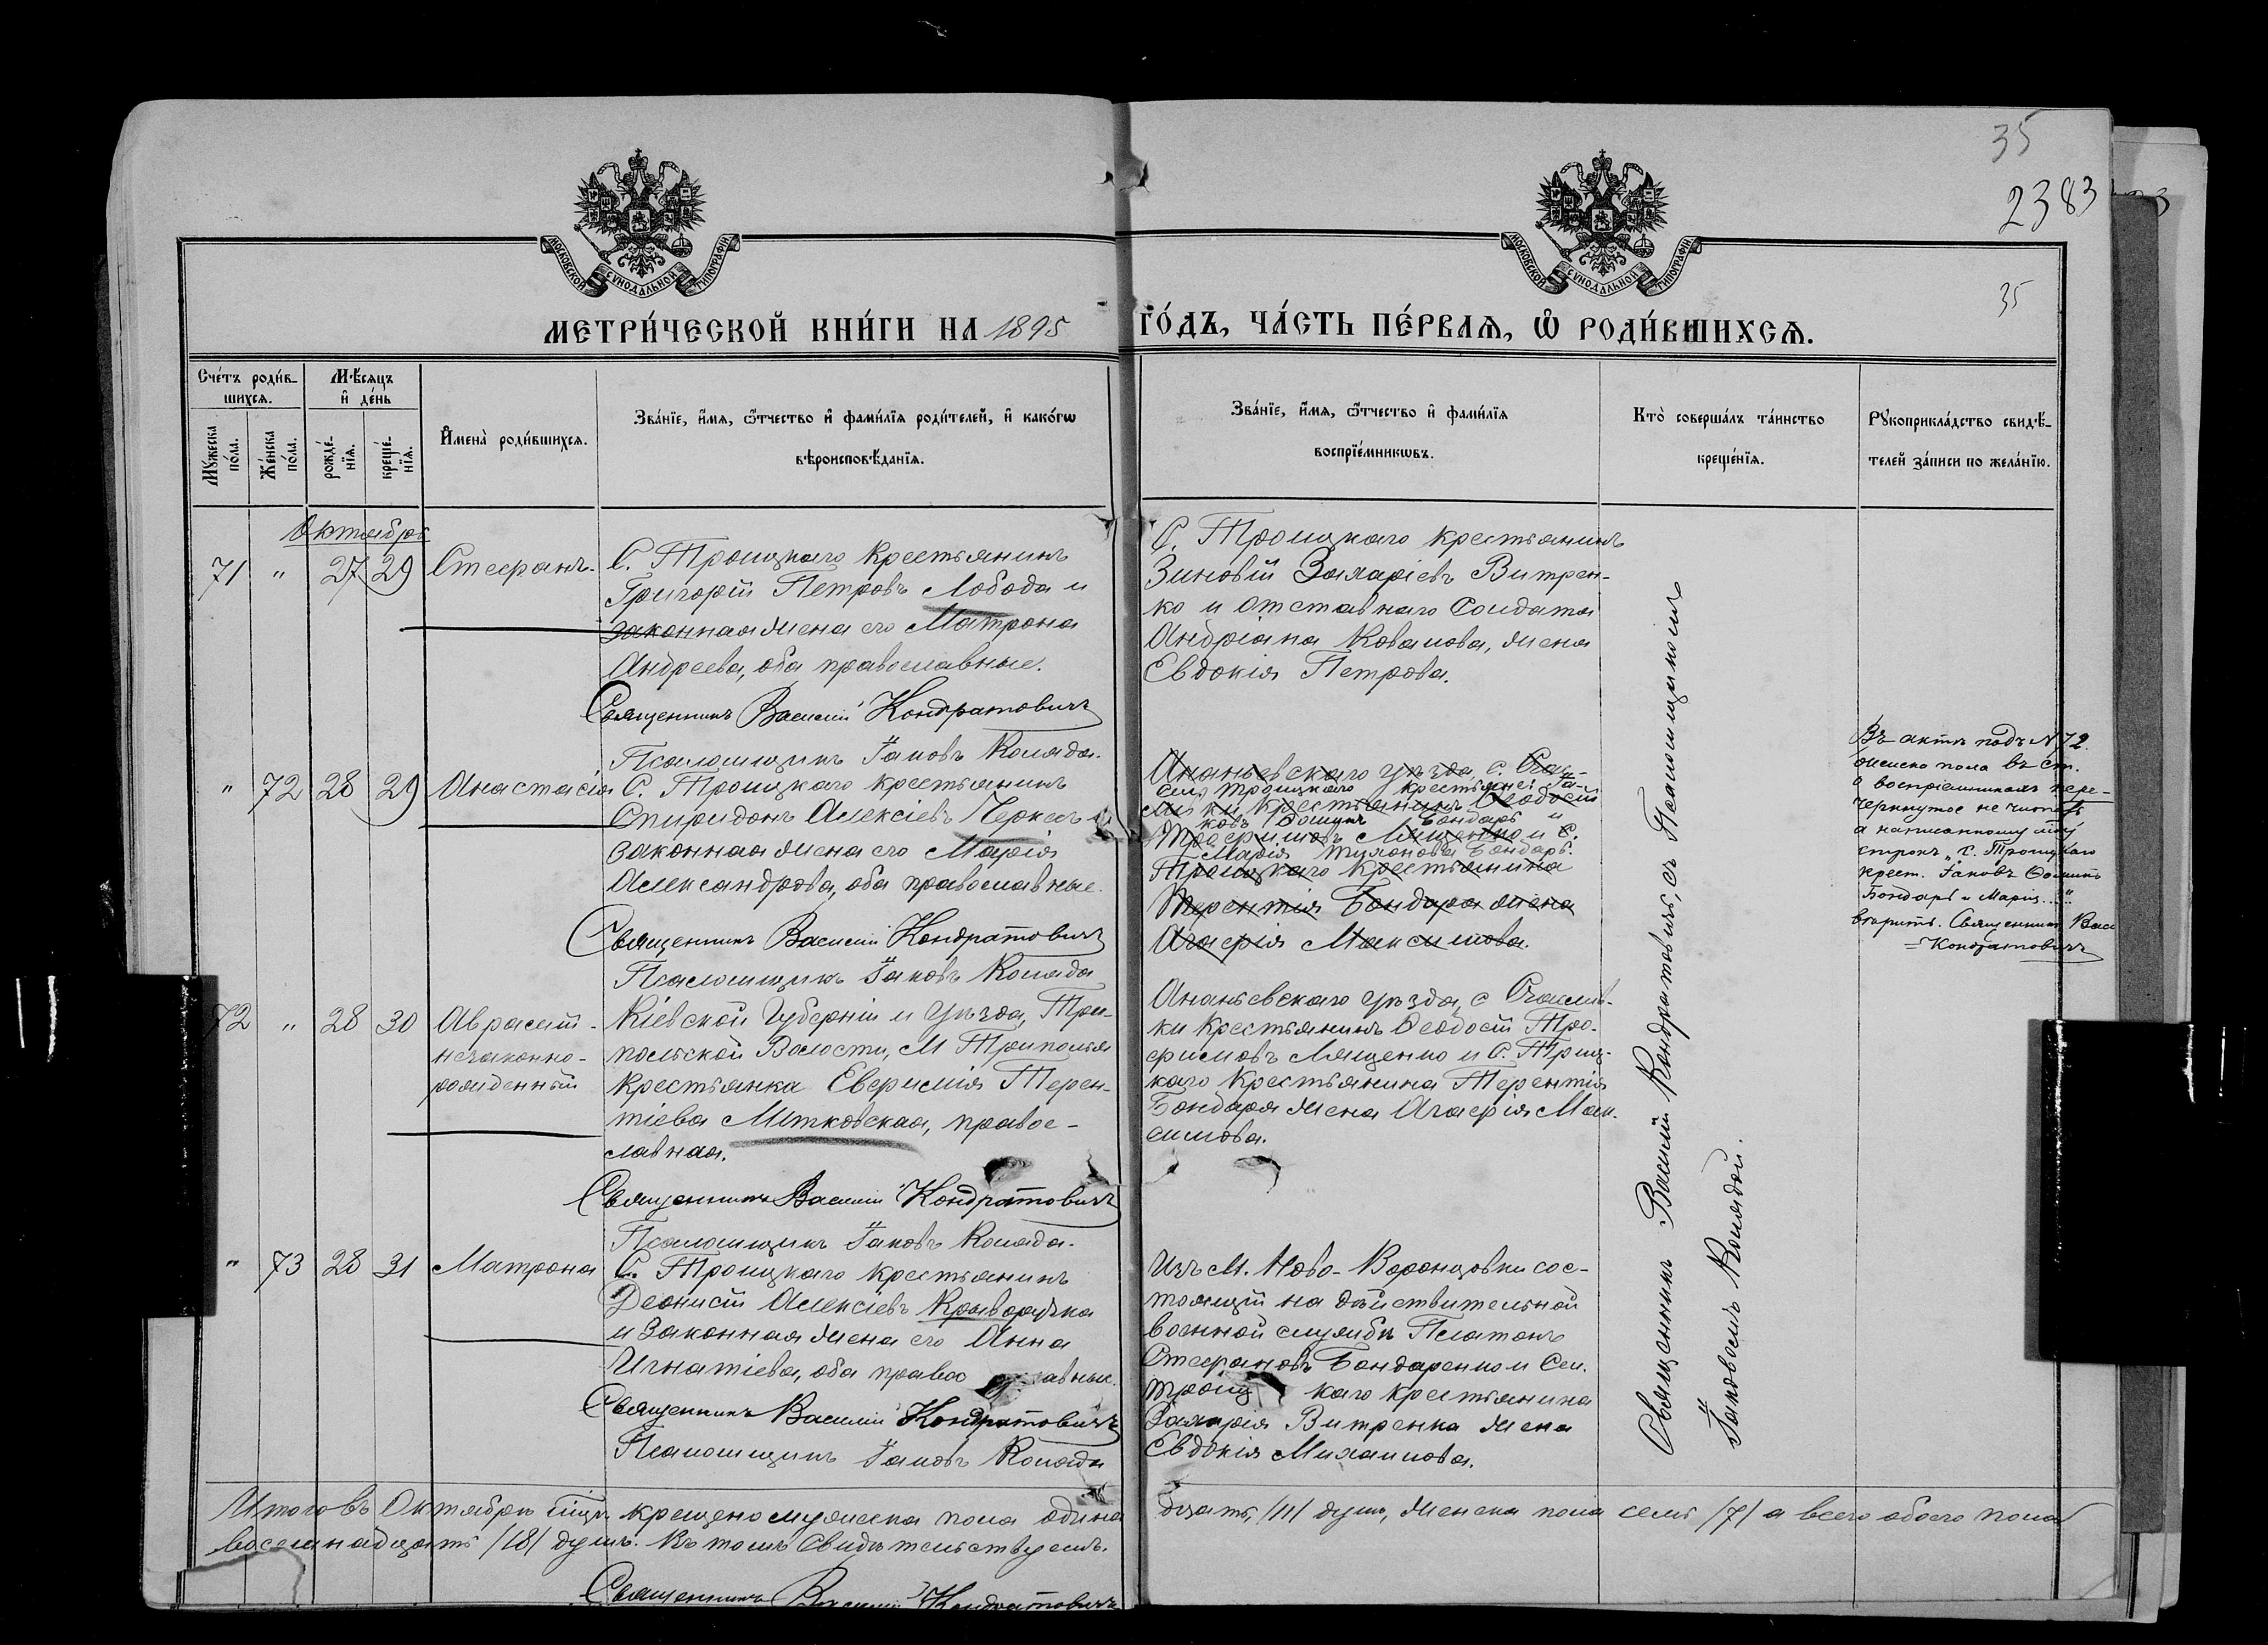 35
2383
35
МОСКОВСКОЙ СѴНОДАЛЬНОЙ ТИПОГРАФІИ
МОСКОВСКОЙ СѴНОДАЛЬНОЙ ТИПОГРАФІИ
МЕТРИ́ЧЕСКОЙ КНИ́ГИ НА 1895 ГО́ДЪ, ЧА́СТЬ ПЕ́РВАЯ, Ѡ҆ РОДИ́ВШИХСЯ.
Сче́тъ роди́в-
шихся.
Мѣ́сяцъ
и҆ де́нь
Мꙋ́жеска по́ла.
Же́нска по́ла.
рожде́-
нїя.
креще́-
нїя.
И҆мена̀ роди́вшихся.
Зва́нїе, и҆́мя, ѻ҆́тчество и҆ фами́лїя роди́телей, и҆ како́гѡ
вѣроисповѣ́данїя.
Зва́нїе, и҆́мя, ѻ҆́тчество и҆ фами́лїя
воспрїе́мникѡвъ.
Кто̀ соверша́лъ та́инство
креще́нїя.
Рꙋкоприкла́дство свидѣ́-
телей за́писи по жела́нїю.
Октябрь
71 " 27 29 Стефанъ.
С. Троицкаго крестьянинъ
Григорій Петровъ Лобода и
законная жена его Матрона
Андреева, оба православные.
Священникъ Василій Кондратовичъ
Псаломщикъ Іаковъ Коляда.
С. Троицкаго крестьянинъ
Зиновій Захаріевъ Витрен-
ко и отставнаго солдата
Андріана Ковалова, жена
Евдокія Петрова.
" 72 28 29 Анастасія
С. Троицкаго крестьянинъ
Спиридонъ Алексіевъ Черкез и
законная жена его Марія
Александрова, оба православные.
Священникъ Василій Кондратовичъ
Псаломщикъ Іаковъ Коляда
Ананьевскаго уѣзда, с.
села Троицкаго крестьяне: Іа-
ки крестьянинъ Ѳеодосій
ковъ Фоминъ Бондарь и
Трофимовъ Лященко и С.
Марія Бондарь.
Троицкаго крестьянина
Терентія Бондаря жена
Агафія Максимова.
Въ актѣ подъ № 72.
женска пола въ ст.
о воспріемникахъ пере-
черкнутое не читать
а написанному
строкъ „С. Троицкаго
крест. Іаковъ Фоминъ
Бондарь и Марія..."
вѣрить. Священникъ Васи
= Кондратовичъ
72 " 28 30 Аврамій -
незаконно-
рожденный
Кіевской Губерніи и Уѣзда, Три-
польской Волости, М Триполья
крестьянка Евфимія Терен-
тіева Митковская, право-
славная.
Священникъ Василій Кондратовичъ
Псаломщикъ Іаковъ Коляда.
Ананьевскаго уѣзда, с
ки крестьянинъ Ѳеодосій Тро-
фимовъ Лященко и С. Троиц-
каго крестьянина Терентія
Бондаря жена Агафія Мак-
симова.
" 73 28 31 Матрона
С. Троицкаго крестьянинъ
Деонисій Алексіевъ Криворучка
и законная жена его Анна
Игнатіева, оба православные.
Священникъ Василій Кондратовичъ
Псаломщикъ Іаковъ Коляда
Изъ М. Ново-Воронцовки сос-
тоящій на дѣйствительной
военной службѣ Платонъ
Стефановъ Бондаренко и Сел.
Троицкаго крестьянина
Захарія Витренка жена
Евдокія Михаилова.
Священникъ Василій Кондратовичъ, съ Псаломщикомъ
Іаковомъ Колядой.
Итого въ Октябрѣ мцѣ крещено мужеска пола одина
дцать /11/ душъ, женска пола семь /7/ а всего обоего пола
восемнадцать /18/ душъ. Въ томъ свидѣтельствуемъ.
Священникъ Василій Кондратовичъ